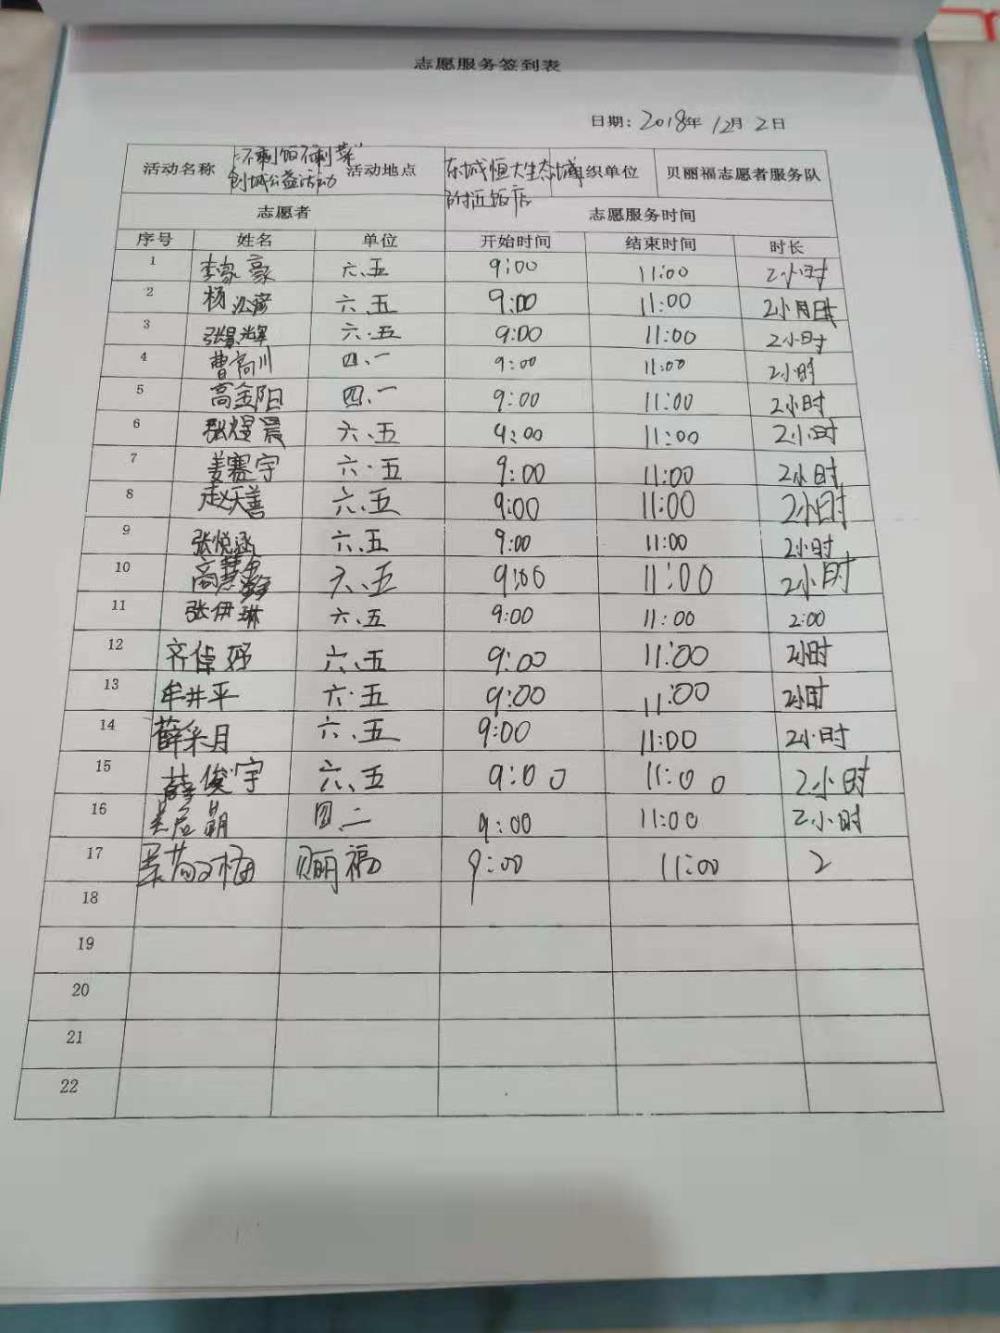 志愿服务签到表
日期：2018年12月2日
活动名称 "不剩饭不剩菜"创城公益活动 活动地点 东城恒大生态城附近饭店 组织单位 贝丽福志愿者服务队
志愿者 志愿服务时间
序号 姓名 单位 开始时间 结束时间 时长
1 李家豪 六.五 9:00 11:00 2小时
2 杨 六.五 9:00 11:00 2小时
3 张景辉 六.五 9:00 11:00 2小时
4 曹高川 四.一 9:00 11:00 2小时
5 高金阳 四.一 9:00 11:00 2小时
6 张煜晨 六.五 9:00 11:00 2小时
7 姜赛宇 六.五 9:00 11:00 2小时
8 赵天善 六.五 9:00 11:00 2小时
9 张悦涵 六.五 9:00 11:00 2小时
10 六.五 9:00 11:00 2小时
11 张伊琳 六.五 9:00 11:00 2:00
12 齐 六.五 9:00 11:00 2小时
13 牟井平 六.五 9:00 11:00 2小时
14 薛采月 六.五 9:00 11:00 2小时
15 薛俊宇 六.五 9:00 11:00 2小时
16 四.二 9:00 11:00 2小时
17 贝丽福 9:00 11:00 2
18
19
20
21
22